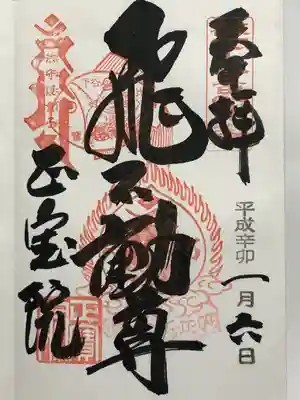 奉拝
平成辛卯
一月六日
飛不動尊
正宝院